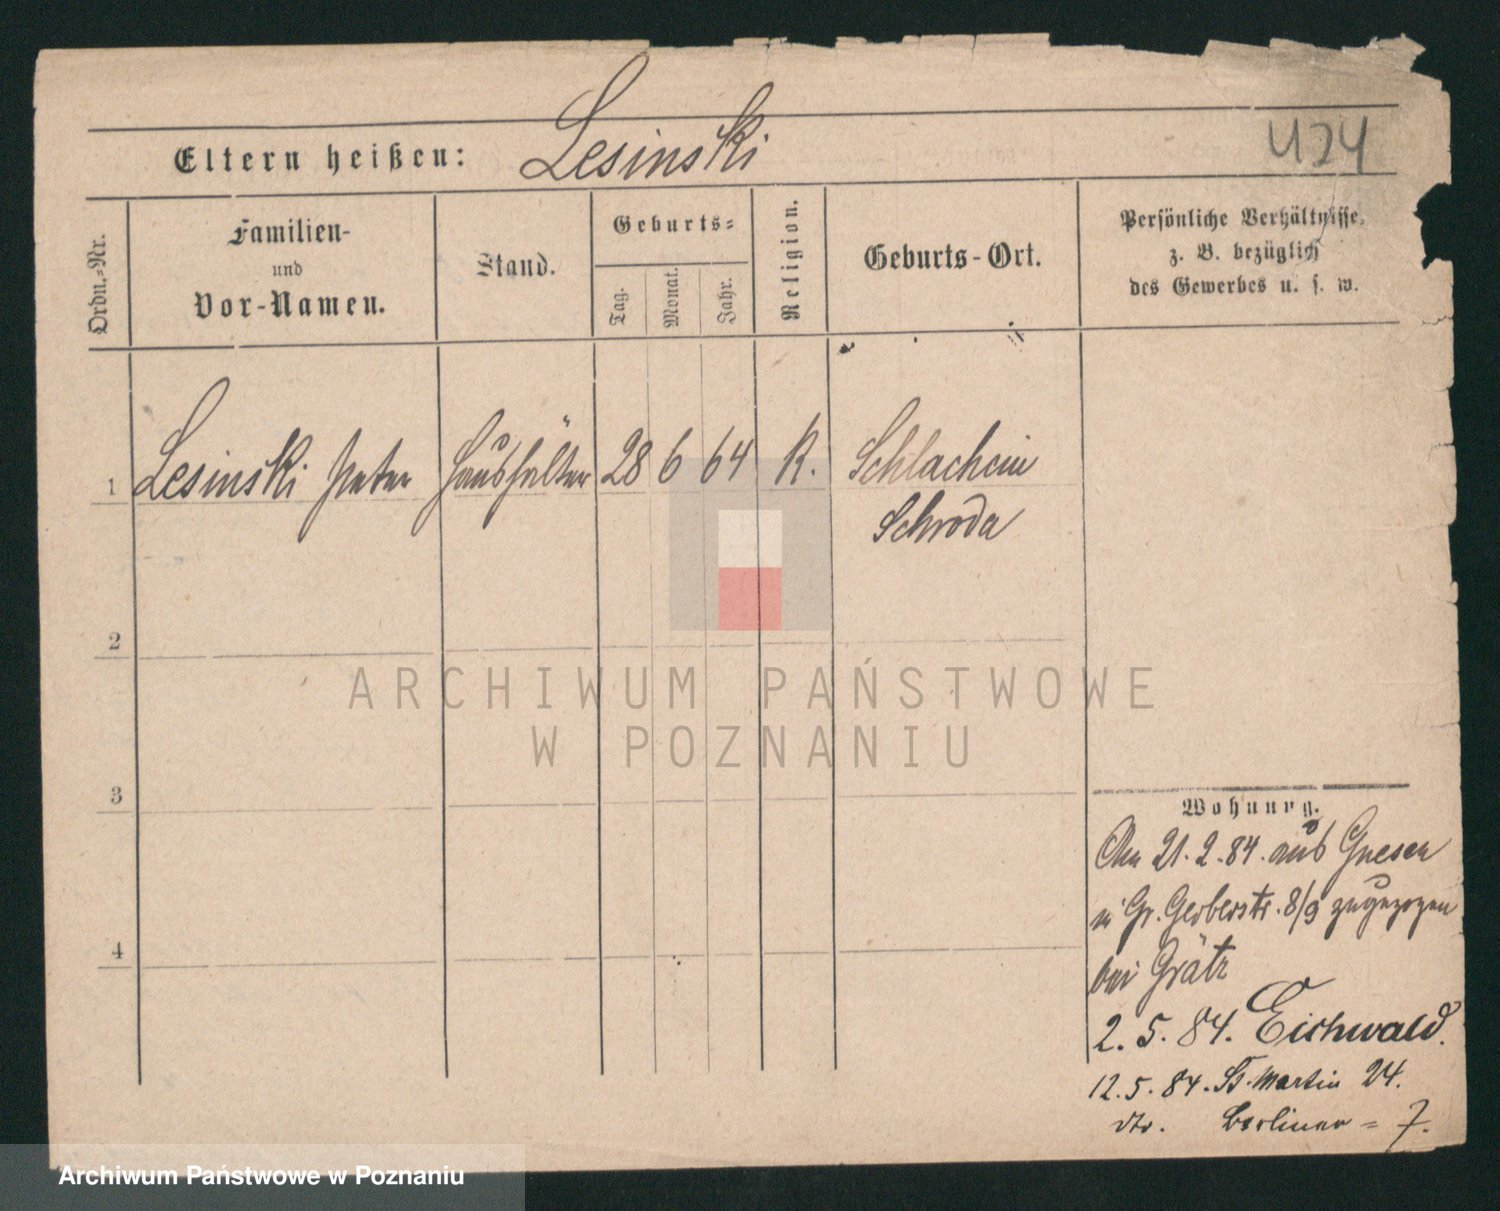 U24
Eltern heißen: Lesinski
Ordn.-Nr.
Familien-
und
Vor-Namen.
Stand.
Geburts-
Tag.
Monat.
Jahr.
Religion.
Geburts-Ort.
Persönliche Verhältnisse,
z. B. bezüglich
des Gewerbes u. s. w.
1 Lesinski Peter Haushälter 28 6 64 K. Schlachcin
Schroda
2
3
4
Wohnung.
Am 21.2.84. aus Gnesen
n Gr. Gerberstr. 8/9 zugezogen
bei Grätz
2. 5. 84. Eichwald.
12. 5. 84. St. Martin 24.
dto. Berliner = 7.
ARCHIWUM PAŃSTWOWE
W POZNANIU
Archiwum Państwowe w Poznaniu